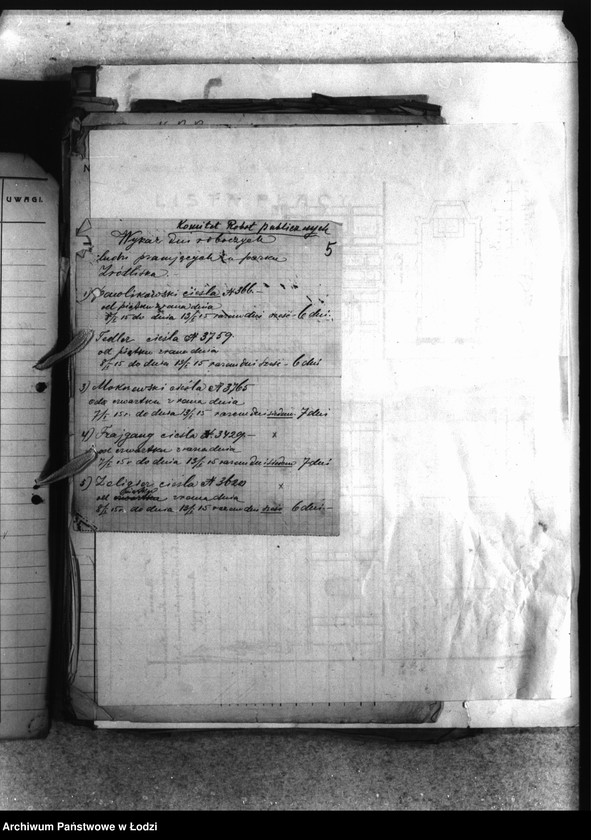 UWAGI.
LISTA PŁACY
Komitet Robót publicznych
5
Wykaz dni roboczych
ludzi pracujących w parku
Źródliska
1) cieśla № 366
od piątku z rana dnia
8/I 15 do dnia 13/I 15 razem dni sześć - 6 dni.
2) Fedler cieśla № 3759
od piątku z rana dnia
8/I 15 do dnia 13/I 15 razem dni sześć - 6 dni
3) Makowski cieśla № 3765
od czwartku z rana dnia
7/I 15 r. do dnia 13/I 15 razem dni siedem 7 dni
4) Frajgang cieśla № 3429 - x
od czwartku z rana dnia
7/I 15 r. do dnia 13/I 15 razem dni siedem 7 dni
5) Zeligier cieśla № 3620 x
od z rana dnia
8/I 15 r. do dnia 13/I 15 razem dni sześć 6 dni. -
Archiwum Państwowe w Łodzi